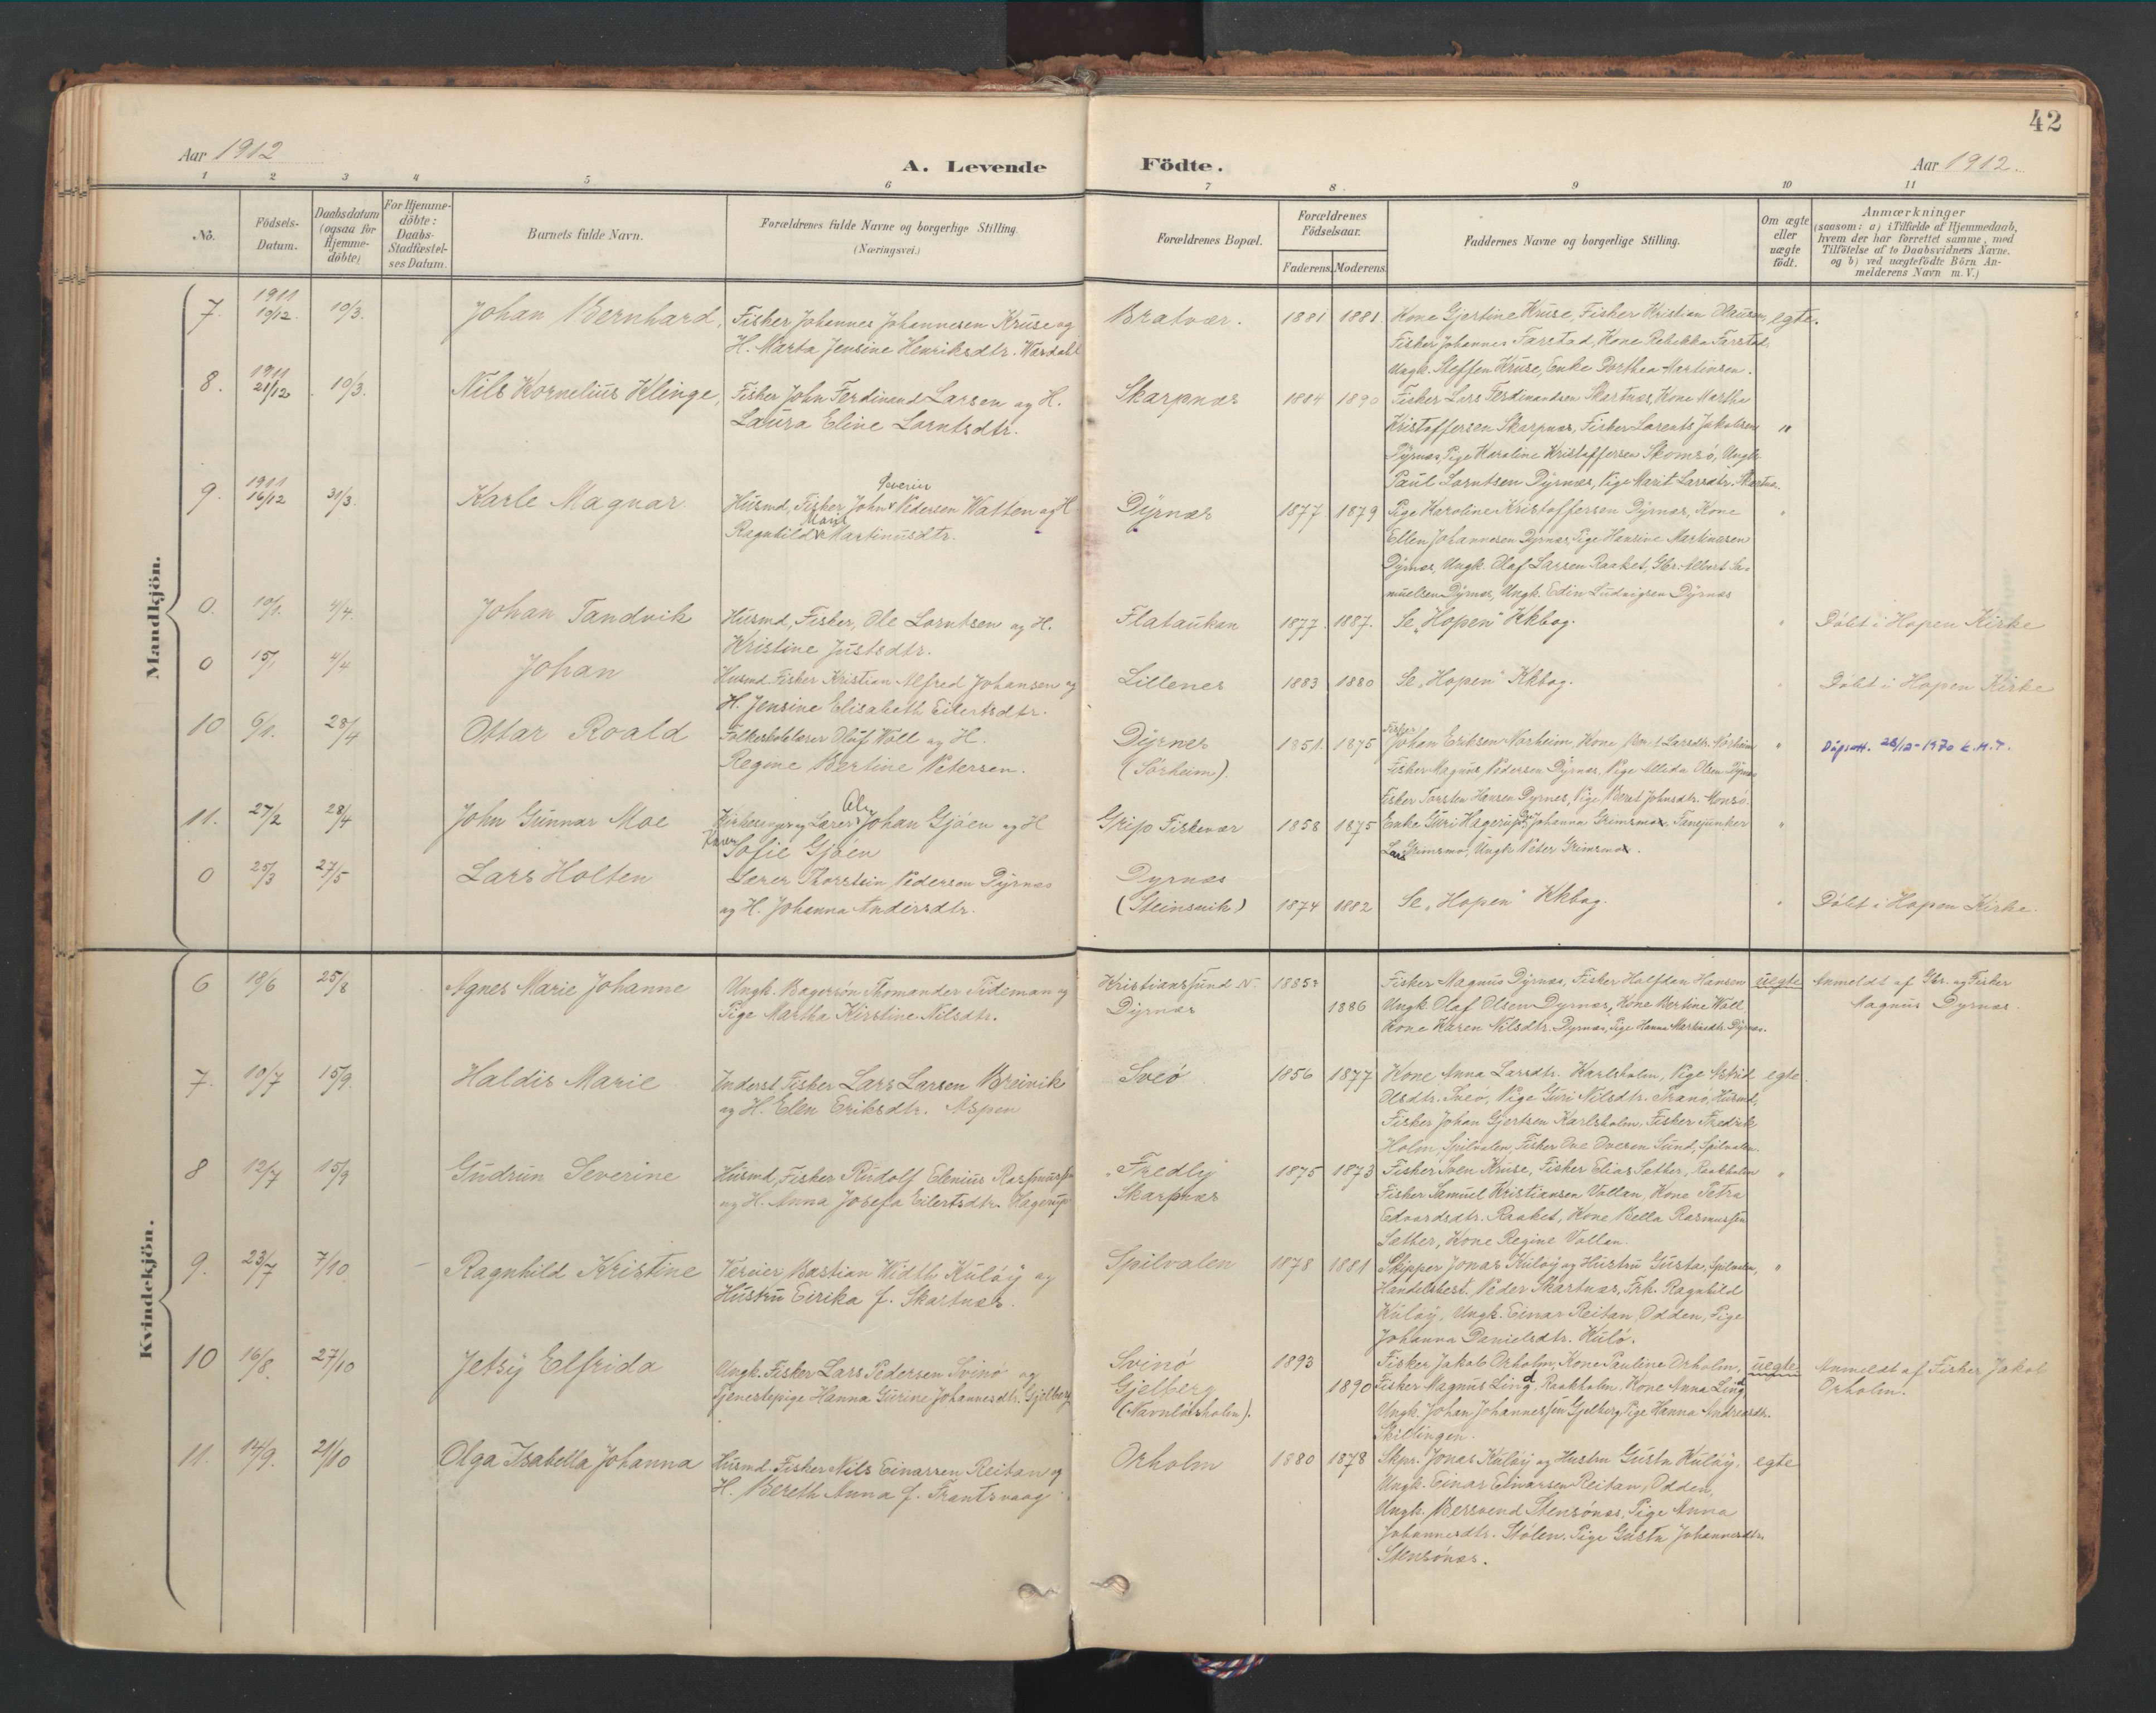 42
Aar 1912
A. Levende
Födte.
Aar 1912.
1 2 3 4 5 6 7 8. 9 10 11
No.
Födsels-
Datum.
Daabsdatum
(ogsaa for
Hjemme-
döbte)
For Hjemme-
döbte:
Daabs-
Stadfæstel-
ses Datum.
Barnets fulde Navn.
Forældrenes fulde Navne og borgerlige Stilling.
(Næringsvei.)
Forældrenes Bopæl.
Forældrenes
Födselsaar.
Faderens. Moderens.
Faddernes Navne og borgerlige Stilling.
Om ægte
eller
uægte
födt.
Anmærkninger
(saasom: a) i Tilfælde af Hjemmedaab,
hvem der har forrettet samme, med
Tilföielse af to Daabsvidners Navne.
og b) ved uægtefödte Börn An-
melderens Navn m.V.)
Mandkjön.
7. 1911 10/12. 10/3. Johan Bernhard,
Fisker Johannes Johannesen Kruse og
H. Marta Jensine Henriksdtr.
Bratvær. 1881 1881.
Kone Gjertine Kruse, Fisker Kristian Olausen
Fisker Johannes Farstad, Kone Rebekka Farstad,
Ungk. Steffen Kruse, Enke Dorthea Martinsen.
egte.
8. 1911 21/12 10/3. Nils Kornelius Klinge,
Fisker John Ferdinand Larsen og H.
Laura Eline Larntsdtr.
Skarpnæs 1884 1890
Fisker Lars Ferdinandsen Skartnæs, Kone Martha
Kristoffersen Skarpnæs, Fisker Lorents Jakobsen
Dyrnæs, Pige Karoline Kristoffersen Skomsö, Ungk.
Paul Lorntsen Dyrnæs, Pige Marit Larsdtr.
"
9. 1911 16/12 31/3. Karle Magnar
Severin
Husmd, Fisker John Pedersen Watten og H
Marie
Ragnhild Martinusdtr.
Dyrnæs 1877 1879
Pige Karoline Kristoffersen Dyrnæs, Kone
Ellen Johannesen Dyrnæs, Pige Hansine Martinesen
Dyrnæs, Ungk. Olaf Larsen Raaket, Gbr. Albert Sa-
muelsen Dyrnæs, Ungk. Edin Ludvigsen Dyrnæs
"
0. 10/1. 4/4. Johan Tandvik
Husmd, Fisker, Ole Lorntsen og H.
Kristine Justsdtr.
Flataukan 1877. 1887.
Se „Hopen" Kkbog.
"
Döbt i Hopen Kirke
0 15/1 4/4 Johan
Husmd Fisker Kristian Alfred Johansen og
H. Jensine Elisabeth Eilertsdtr.
Lillenes 1883 1880
Se „Hopen" Kkbog.
"
Döbt i Hopen Kirke
10 6/1. 28/4 Ottar Roald
Folkeskolelærer Oluf Woll og H.
Regine Bertine Petersen.
Dyrnes
(Sörheim). 1851. 1875
Fisker
Johan Eriksen Norheim, Kone Larsdtr. Norheim
Fisker Magnus Pedersen Dyrnæs, Pige Allida Olsen Dyrnæs
Fisker Torsten Hansen Dyrnes, Pige Beret Johnsdtr. Monsö.
"
Dåpsatt. 28/12-1970 E.M.T.
11. 27/2 28/4 John Gunnar Moe
Kirkesanger og Lærer Johan Gjöen og H
Karen
Sofie Gjöen
Grip Fiskevær 1858 1875
Enke Guri Hagerup, Johanna Grimsmo, Fanejunker
Lars Grimsmo, Ungk Peter Grimsmo.
"
0 25/3 27/5 Lars Holten
Lærer Thorstein Pederson Dyrnæs
og H. Johanna Andersdtr.
Dyrnæs
(Steinsvik) 1874 1882
Se „Hopen" Kkbog.
"
Döbt i Hopen Kirke.
Kvindekjön.
6 18/6 25/8 Agnes Marie Johanne
Ungk. Bagersön Thomander Tideman og
Pige Martha Kirstine Nilsdtr.
Kristiansund N.
Dyrnæs
1885?
1886
Fisker Magnus Dyrnæs, Fisker Halfdan Hansen
Ungk Olaf Olsen Dyrnæs, Kone Bertine Woll
Kone Karen Nilsdtr. Dyrnæs, Pige Hanna Martinsdtr. Dyrnæs.
uegte
Anmeldt af Gbr. og Fisker
Magnus Dyrnæs.
7. 10/7 15/9. Haldis Marie
Inderst. Fisker Lars Larsen Breivik
og H. Elen Eriksdtr. Aspen
Sveö 1856 1877
Kone Anna Larsdtr. Karlsholm, Pige Astrid
Olsdtr. Sveö, Pige Guri Nilsdtr. Tranö, Husmd,
Fisker Johan Gjertsen Karlsholm, Fisker Fredrik
Holm, Spilvalen, Fisker Ove Ovesen Sund, Spilvalen.
egte.
8 12/7 15/9 Gudrun Severine
Husmd, Fisker Rudolf Elenius Rasmussen
og H. Anna Josefa Eilertsdtr. Hagerup
„Fredly
Skarpnæs 1875 1873
Fisker Sven Kruse, Fisker Elias Sæther, Raakholm
Fisker Samuel Kristiansen Vollan, Kone Petra
Edvardsdtr. Raaket, Kone Bella Rasmussen
Sæther, Kone Regine Vollan.
"
9. 23/7 7/10 - Ragnhild Kristine
Verver Bastian Width Kuløy og
Hustru Eirika f. Skartnæs.
Spilvalen 1878 1881
Skipper Jonas Kuløy og Hustru Gusta, Spilvalen,
Handelsbest. Peder Skartnæs, Frk. Ragnhild
Kuløy, Ungk. Einar Reitan, Odden, Pige
Johanna Danielsdtr. Kulö.
"
10 16/8. 27/10 Jetsy Elfrida
Ungk. Fisker Lars Pedersen Svinö og
Tjenestepige Hanna Gurine Johannesdtr. Gjelberg
Svinö
Gjelberg
(Navnløsholm).
1893
1890
Fisker Jakob Orholm, Kone Pauline Orholm,
Fisker Magnus Lind, Raakholm, Kone Anna Lind
Ungk. Johan Johannessen Gjelberg, Pige Hanna Andreasdtr.
Skillingen.
uegte
Anmeldt af Fisker Jakob
Orholm.
11. 14/9. 21/10 Olga Isabella Johanna
Husmd, Fisker Nils Einarsen Reitan og
H. Bereth Anna f. Frantsvaag
Orholm 1880 1878
Skpr. Jonas Kuløy og Hustru Gusta Kuløy,
Ungk. Einar Einarsen Reitan, Odden,
Ungk. Bersvend Stensönæs, Pige Anna
Johannesdtr. Stölen, Pige Gusta Johannesdtr.
Stensönæs.
egte